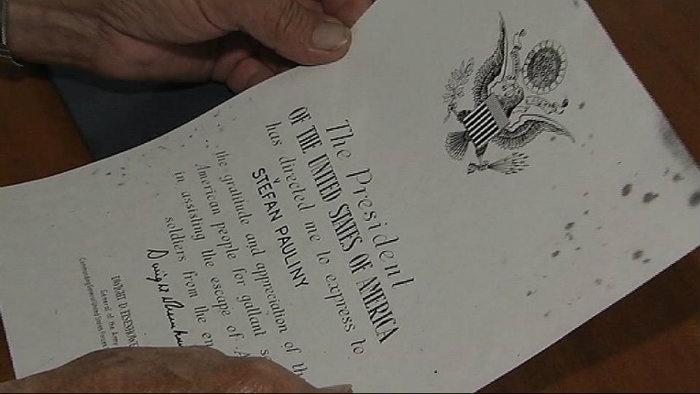 The President
OF THE UNITED STATES OF AMERICA
has directed me to express to
ŠTEFAN PAULINY
the gratitude and appreciation of the
American people for gallant
in assisting the escape of
soldiers from the
DWIGHT D. EISENHOWER
General of the Army
Commanding General United States Forces